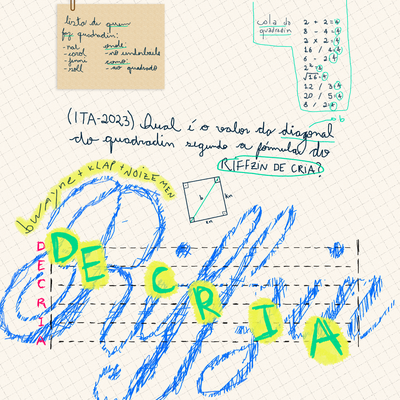 lista de quem
faz quadradin:
-nat
-carol
-finni
-roll
onde:
-no underleeds
como:
-so quadrado
cola do
quadradin
2 + 2 = 4
8 - 4 = 4
2 x 2 = 4
16 / 4 = 4
6 - 2 = 4
2² = 4
√16 = 4
12 / 3 = 4
20 / 5 = 4
8 / 2 = 4
(ITA-2023) Qual é o valor da diagonal
do quadradin segundo a fórmula do
RIFFZIN DE CRIA?
bwayne + KLAP + NOIZE MEN
Riffzin
DE CRIA
D
E
C
R
I
A